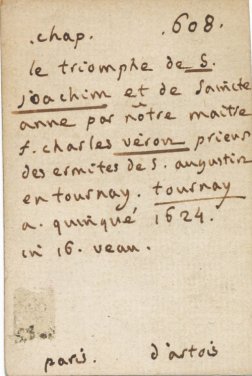 .chap. .608.
le triomphe de S.
joachim et de saincte
anne par nõtre maitre
f. charles véron prieur
des ermites de S. augustin
en tournay. tournay
a. quinqué 1624.
in 16. veau.
paris. d'artois